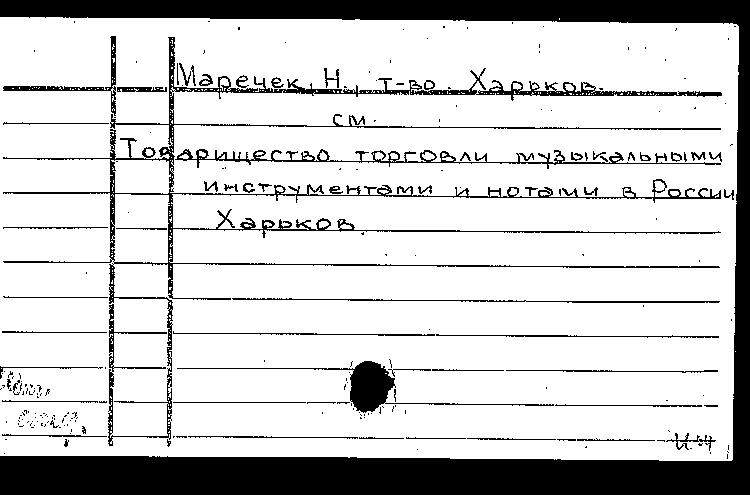 Маречек, Н., т-во. Харьков.
см.
Товарищество торговли музыкальными
инструментами и нотами в России
Харьков.